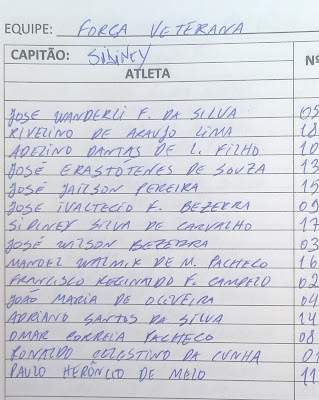 EQUIPE: FORÇA VETERANA
CAPITÃO: SIDINEY
ATLETA Nº
JOSE WANDERLI F. DA SILVA 05
RIVELINO DE ARAUJO LIMA 18
ADELINO DANTAS DE L. FILHO 10
JOSÉ ERASTOTENES DE SOUZA 13
JOSÉ JAILSON PEREIRA 15
JOSE IVALTECIO F. BEZERRA 09
SIDINEY SILVA DE CARVALHO 17
JOSÉ WILSON BEZERRA 03
MANOEL WALMIR DE M. PACHECO 16
FRANCISCO REGINALDO F. CAMPELO 02
JOÃO MARIA DE OLIVEIRA 04
ADRIANO SANTOS DA SILVA 14
OMAR CORREIA PACHECO 08
RONALDO CELESTINO DA CUNHA 01
PAULO HERÔNCIO DE MELO 11